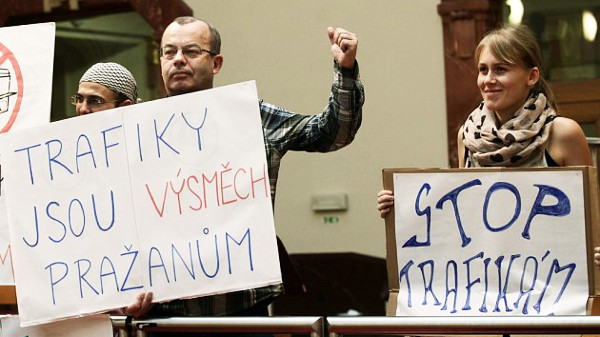 TRAFIKY
JSOU VÝSMĚCH
PRAŽANŮM
STOP
TRAFIKÁM